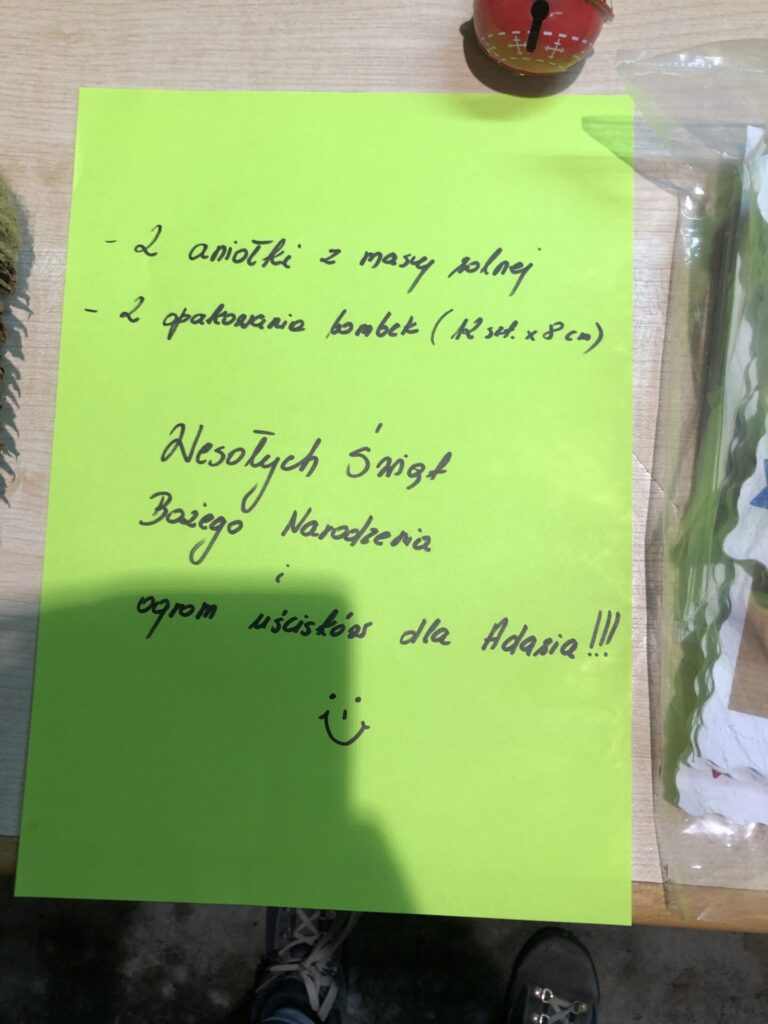 - 2 aniołki z masy solnej
- 2 opakowania bombek (12 szt. x 8 cm)
Wesołych Świąt
Bożego Narodzenia
i
ogrom uścisków dla Adasia!!!